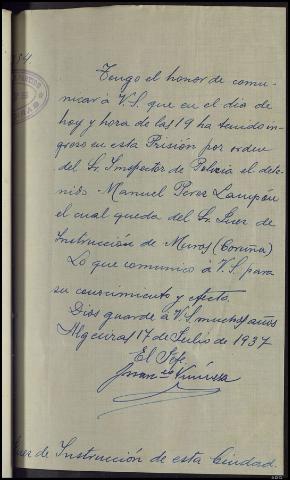 134.
Tengo el honor de comu-
nicar á V.S. que en el dia de
hoy y hora de las 19 ha tenido in-
greso en esta Prisión por orden
del Sr. Inspector de Policia el dete-
nido Manuel Perez Lampón
el cual queda del Sr. Juez de
Instrucción de Muros (Coruña)
Lo que comunico á V.S. para
su conocimiento y efecto.
Dios guarde á V.S. muchos años
Algeciras 17 de Julio de 1937
El Jefe
Juez de Instrucción de esta Ciudad.